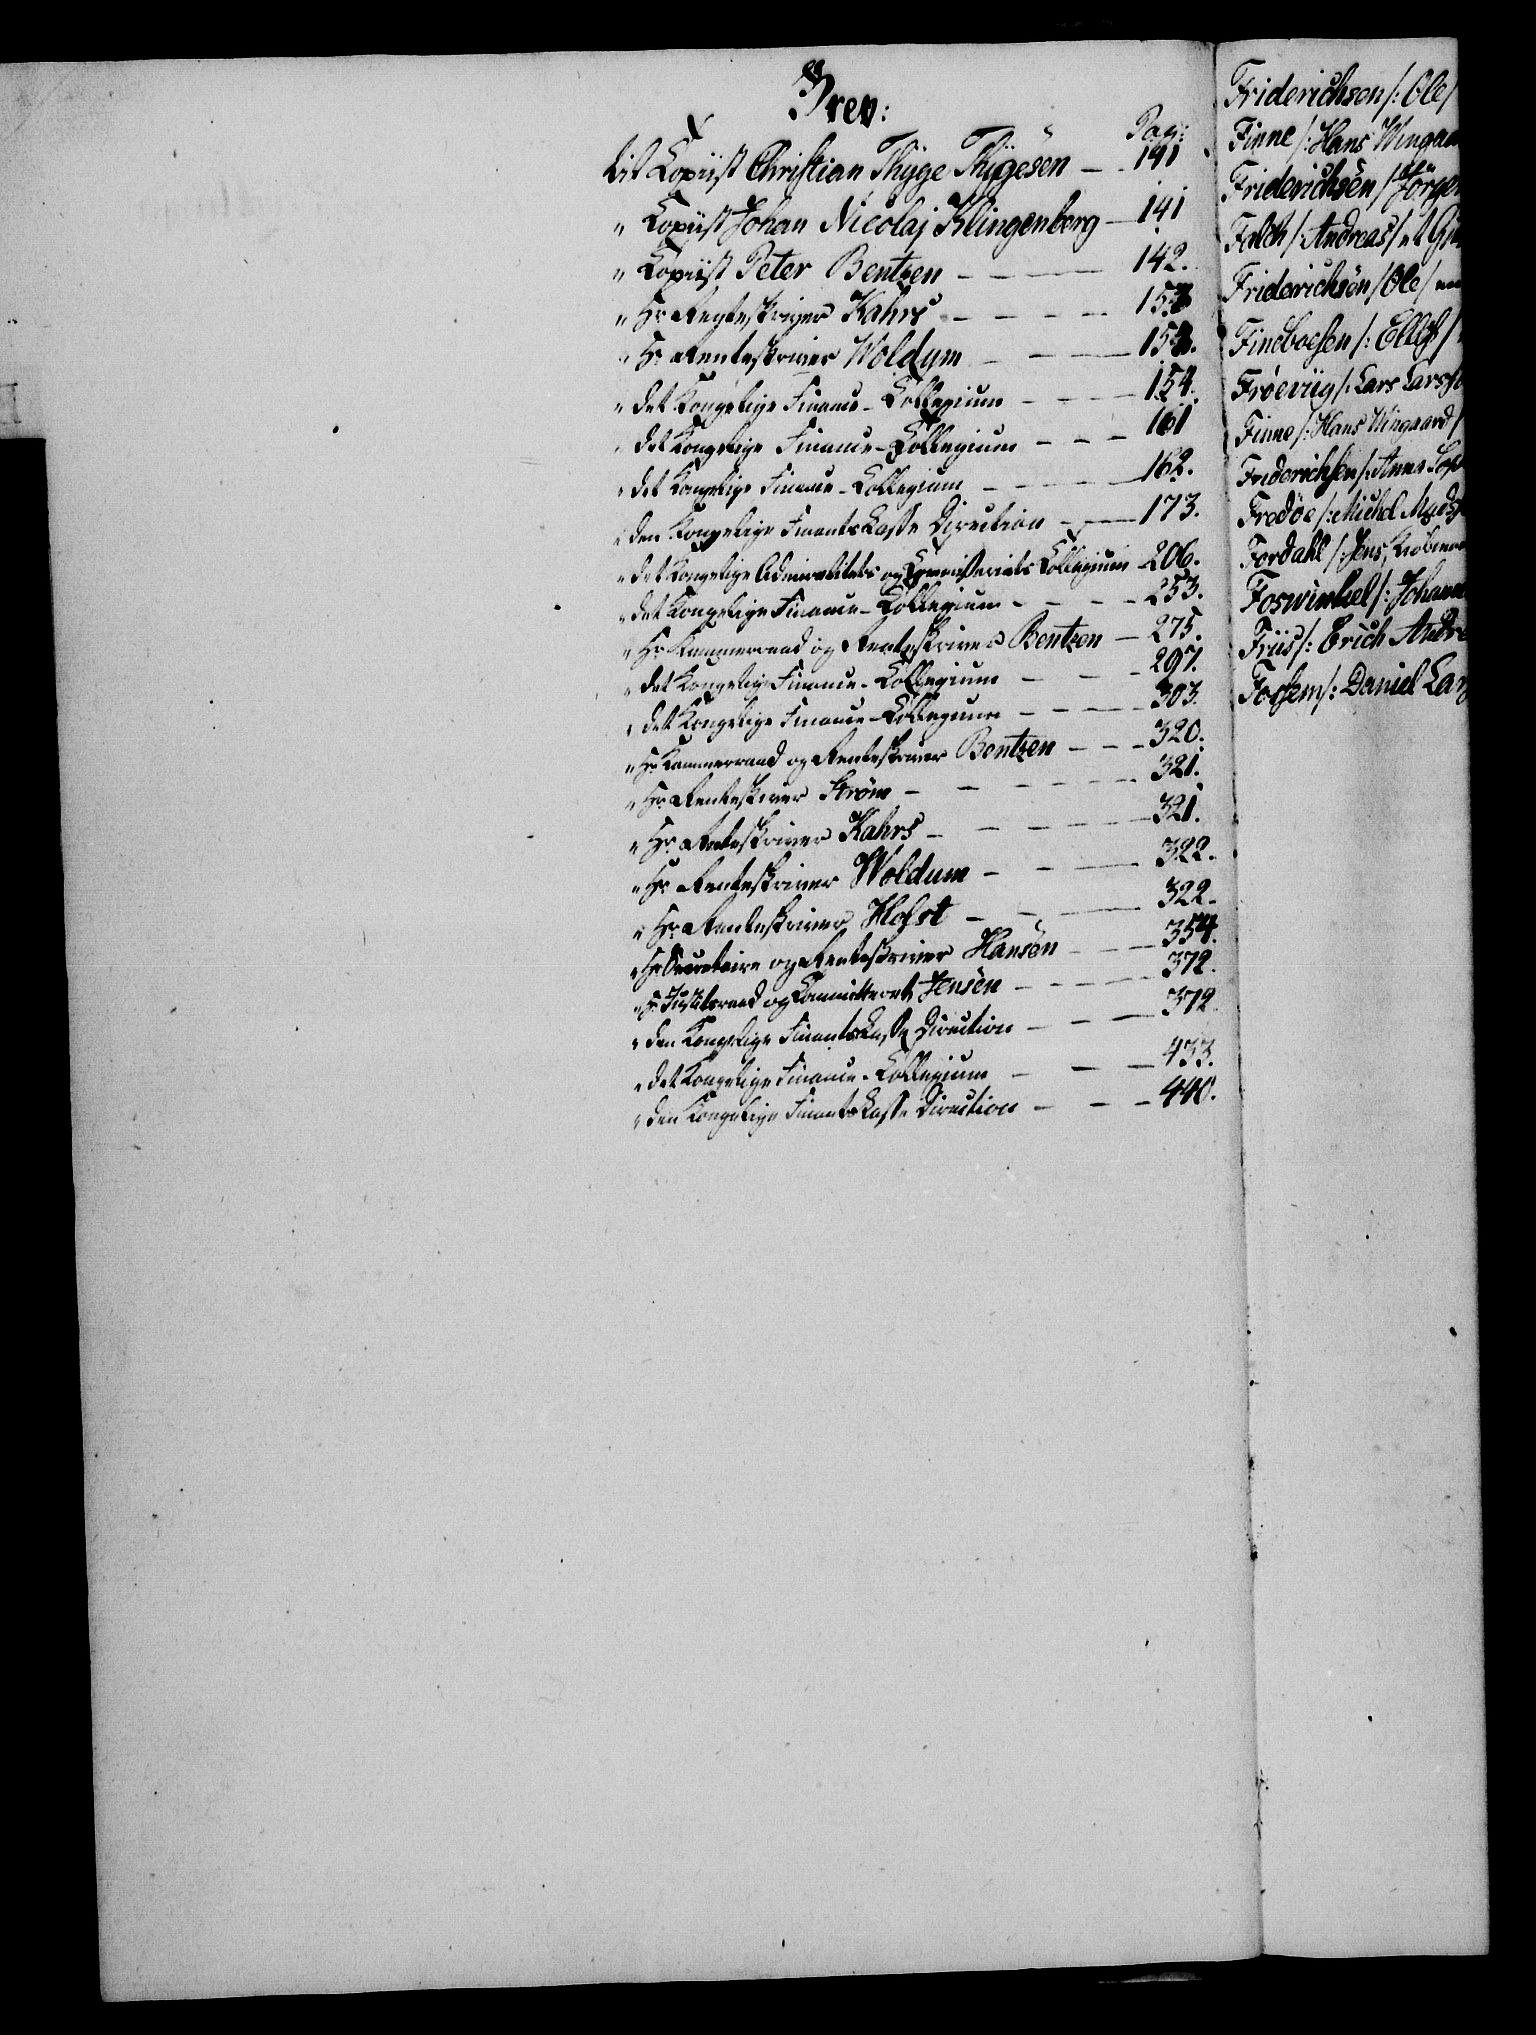 Brev:
Pag:
til Copiist Christian Thÿge Thÿgesen — 141
" Copiist Johan Nicolaj Klingenberg — 141
" Copiist Peter Bentzen — 142.
" Hr Renteskriver Kahrs — 153
" Hr Renteskriver Woldum — 153.
" det Kongelige Finance-Collegium — 154.
" det Kongelige Finance-Collegium — 161
" det Kongelige Finance-Collegium — 162.
" den Kongelige FinantsCasse Direction — 173.
" det Kongelige Admiralitets og Commissariats Collegium 206.
" det Kongelige Finance-Collegium — 253.
" Hr Kammerraad og Renteskriver Bentzen — 275.
" det Kongelige Finance-Collegium — 297.
" det Kongelige Finance-Collegium — 303.
" Hr Kammerraad og Renteskriver Bentzen — 320.
" Hr Renteskriver Strøm — 321.
" Hr Renteskriver Kahrs — 321.
" Hr Renteskriver Woldum — 322.
" Hr Renteskriver Hofst — 322.
" Hr Secretaire og Renteskriver Hansen — 354.
" Hr Justitsraad og Committeret Jensen — 372.
" den Kongelige FinantsCasse Direction — 372
" det Kongelige Finance-Collegium — 433.
" den Kongelige FinantsCasse Direction — 440.
Friderichsen /: Ole /
Finne /: Hans Wingaa
Friderichsen / Jörgen
Falch /: Andreas /
Friderichsen / Ole /
Findboesen /: Ellef /
Frøeviig /: Lars Larss
Finne /: Hans Wingaard /
Friderichsen /: Anne Sop
Fredøe /: Michel Mads
Fordahl /: Jens,
Foswinckel /: Johann
Friis /: Erich Andre
Fossem /: Daniel Lar